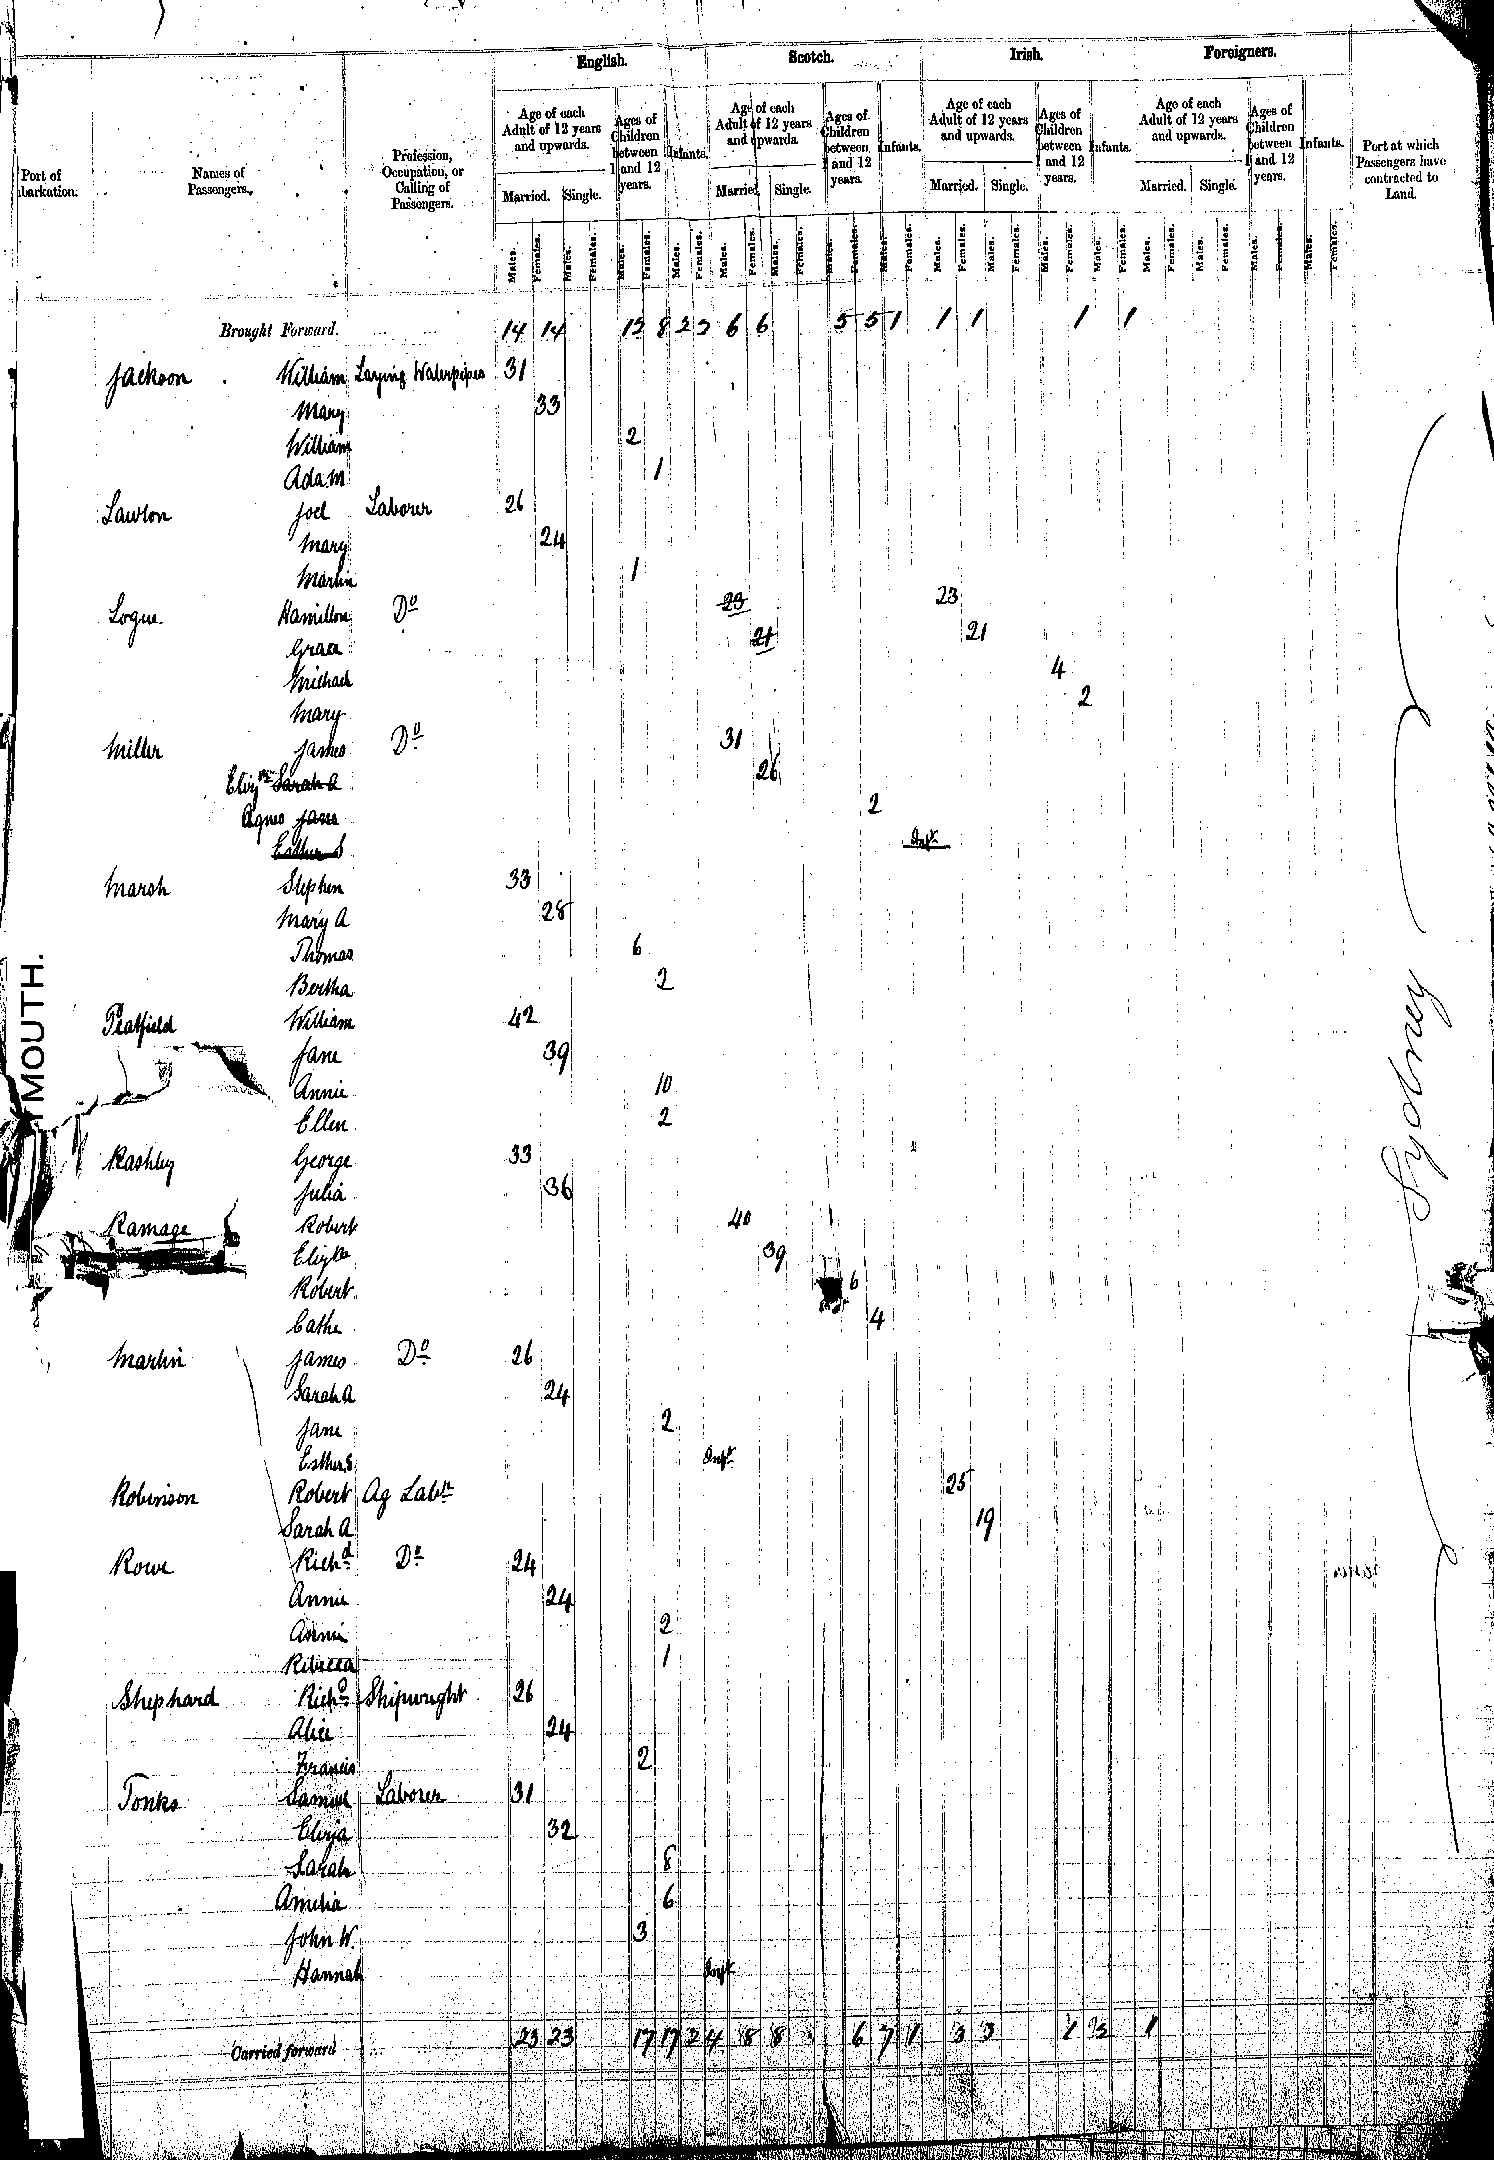 English. Scotch. Irish. Foreigners.
Port of Embarkation. Names of Passengers. Profession, Occupation, or Calling of Passengers. Age of each Adult of 12 years and upwards. Ages of Children between 1 and 12 years. Infants. Age of each Adult of 12 years and upwards. Ages of Children between 1 and 12 years. Infants. Age of each Adult of 12 years and upwards. Ages of Children between 1 and 12 years. Infants. Age of each Adult of 12 years and upwards. Ages of Children between 1 and 12 years. Infants. Port at which Passengers have contracted to Land.
Married. Single. Married. Single. Married. Single. Married. Single.
Males. Females. Males. Females. Males. Females. Males. Females. Males. Females. Males. Females. Males. Females. Males. Females. Males. Females. Males. Females. Males. Females. Males. Females. Males. Females. Males. Females. Males. Females. Males. Females.
Brought Forward. 14 14 13 8 2 3 6 6 5 5 1 1 1 1 1
Jackson William Laying Waterpipes 31
Mary 33
William 2
Adam 1
Lawton Joel Laborer 26
Mary 24
Martin 1
Logue Hamilton Do 23 23
Grace 21 21
Michael 4
Mary 2
Miller James Do 31
Elizth Sarah A 26
Agnes Jane 2
Esther S Inft
Marsh Stephen 33
Mary A 28
Thomas 6
Bertha 2
Peatfield William 42
Jane 39
Annie 10
Ellen 2
Rashley George 33
Julia 36
Ramage Robert 40
Elizth 39
Robert 6
Cathe 4
Martin James Do 26
Sarah A 24
Jane 2
Esther S Inft
Robinson Robert Ag Labr 25
Sarah A 19
Rowe Richd Do 24
Annie 24
Annie 2
Rebecca 1
Shephard Richd Shipwright 26
Alice 24
Francis 2
Tonks Samuel Laborer 31
Eliza 32
Sarah 8
Amelia 6
John W. 3
Hannah Inft
Carried forward 23 23 17 17 2 4 8 8 6 7 1 3 3 1 2 1
YMOUTH.
Sydney